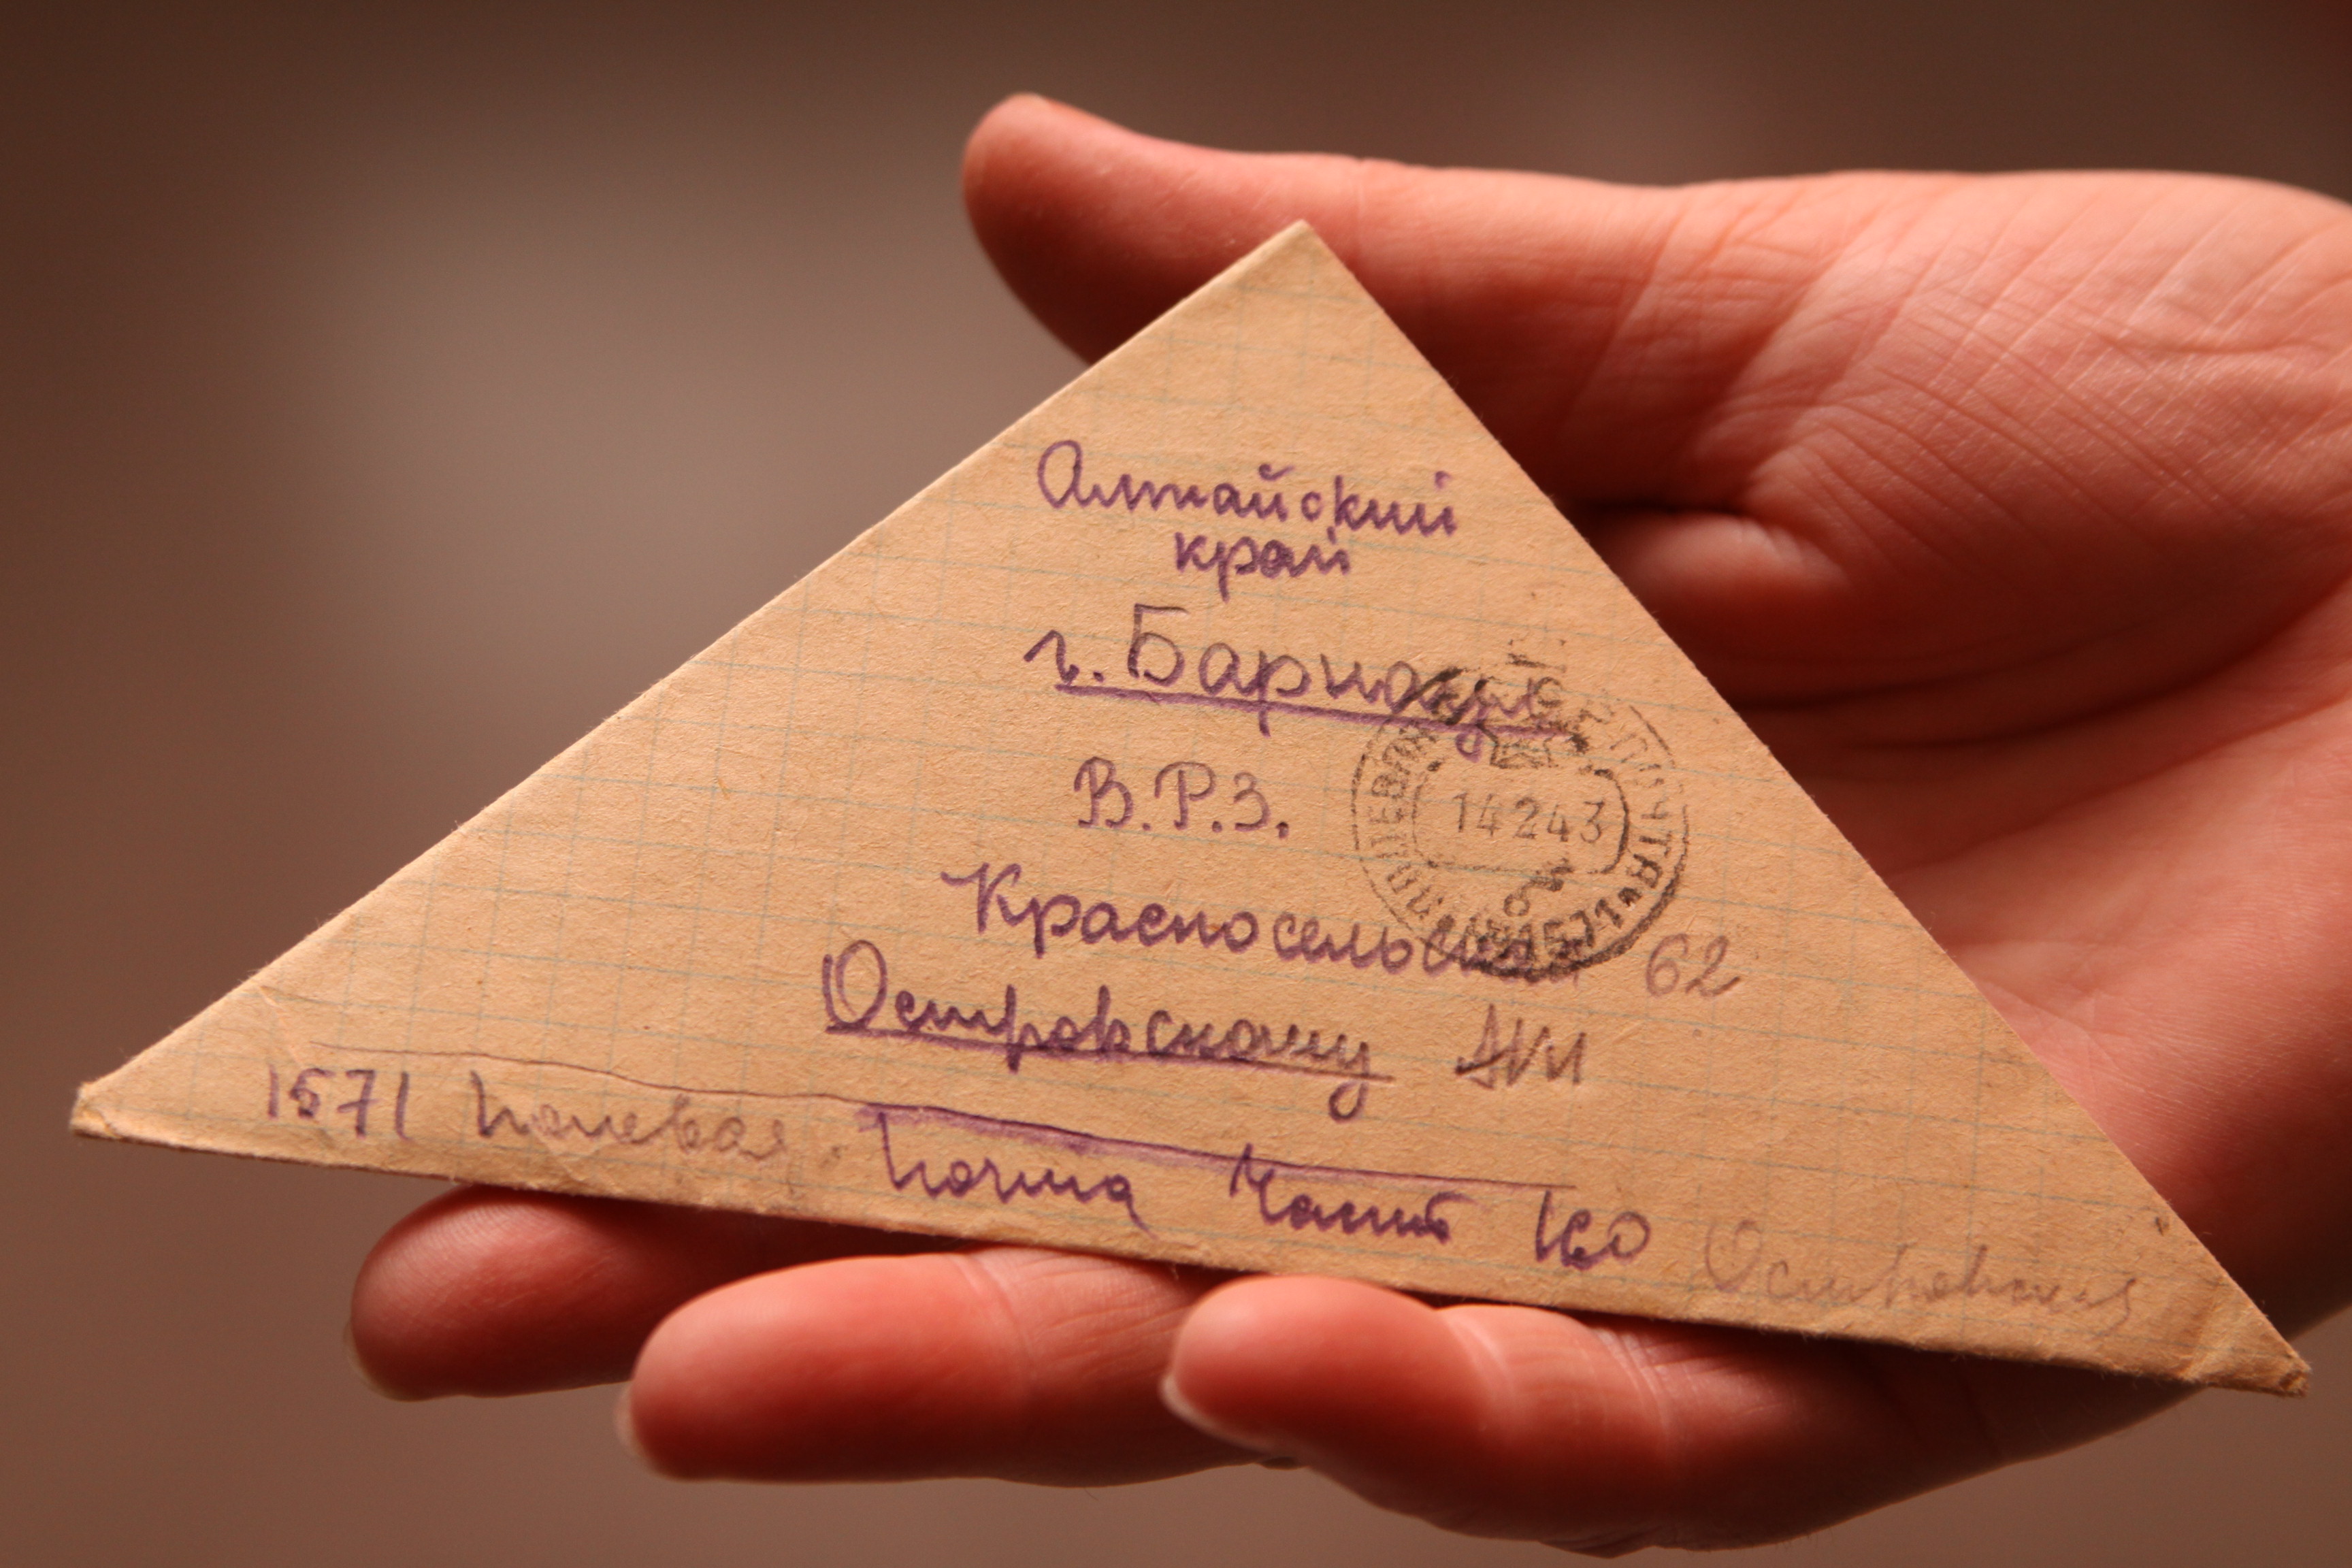 Алтайский
край
г. Барнаул
В.Р.З.
Красносельская 62
Островскому АИ
1571 Полевая. почта Часть 160 Островский
14243